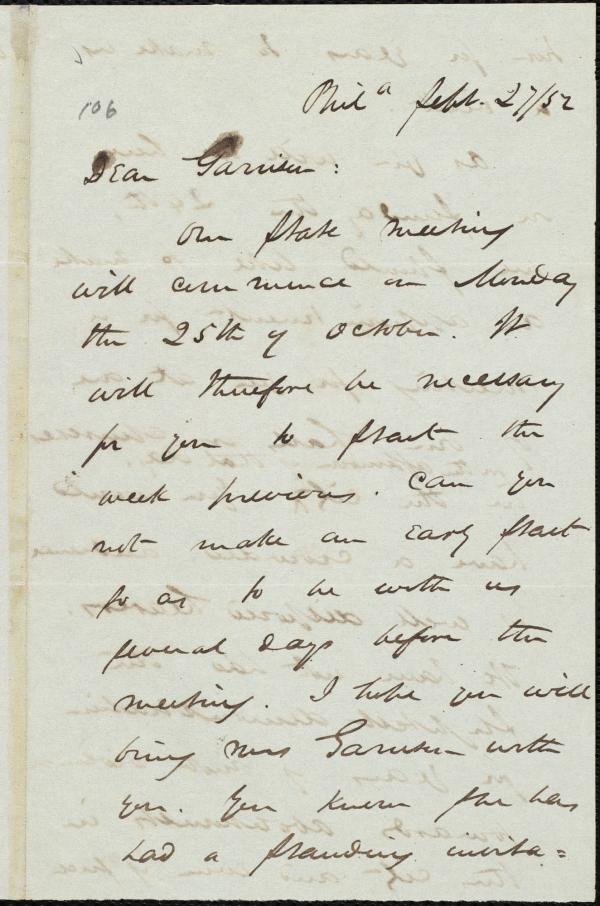 106
Phila Sept. 27/52
Dear Garrison:
Our State meeting
will commence on Monday
the 25th of October. It
will therefore be necessary
for you to start the
week previous. Can you
not make an early start
so as to be with us
several days before the
meeting. I hope you will
bring Mrs Garrison with
you. You know she has
had a standing invita=